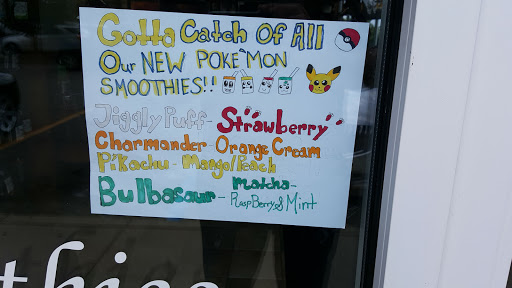 Gotta Catch Of All
Our NEW POKE`MON
SMOOTHIES!!
Jiggly Puff - Strawberry
Charmander - Orange Cream
Pikachu - Mango/Peach
Bulbasaur - Matcha -
RaspBerry & Mint